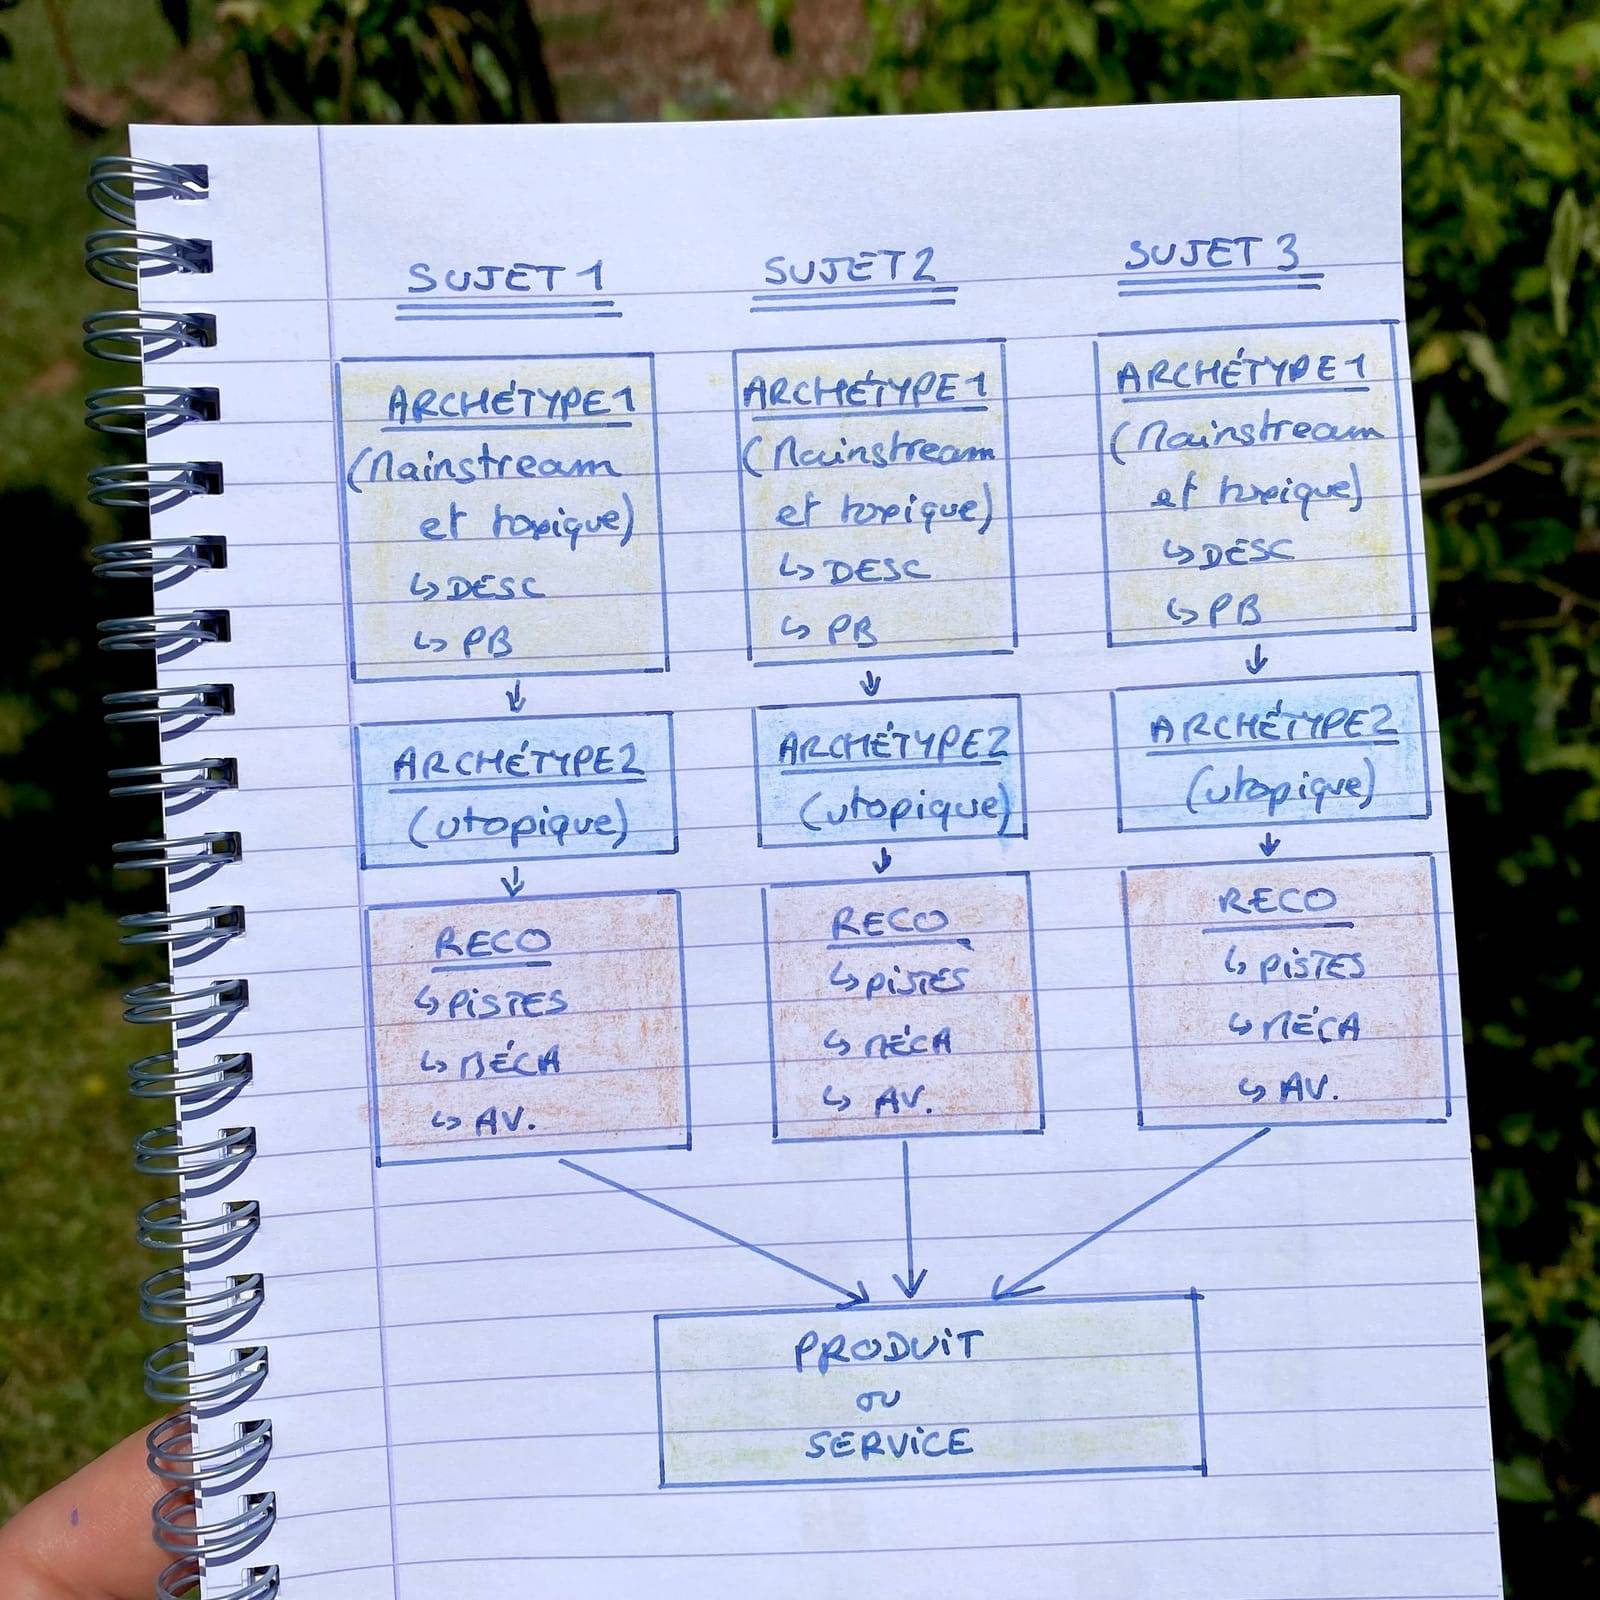 SUJET 1
ARCHÉTYPE 1
(Mainstream
et toxique)
↳ DESC
↳ PB
ARCHÉTYPE 2
(utopique)
RECO
↳ PISTES
↳ MÉCA
↳ AV.
SUJET 2
ARCHÉTYPE 1
(Mainstream
et toxique)
↳ DESC
↳ PB
ARCHÉTYPE 2
(utopique)
RECO
↳ PISTES
↳ MÉCA
↳ AV.
SUJET 3
ARCHÉTYPE 1
(Mainstream
et toxique)
↳ DESC
↳ PB
ARCHÉTYPE 2
(utopique)
RECO
↳ PISTES
↳ MÉCA
↳ AV.
PRODUIT
ou
SERVICE